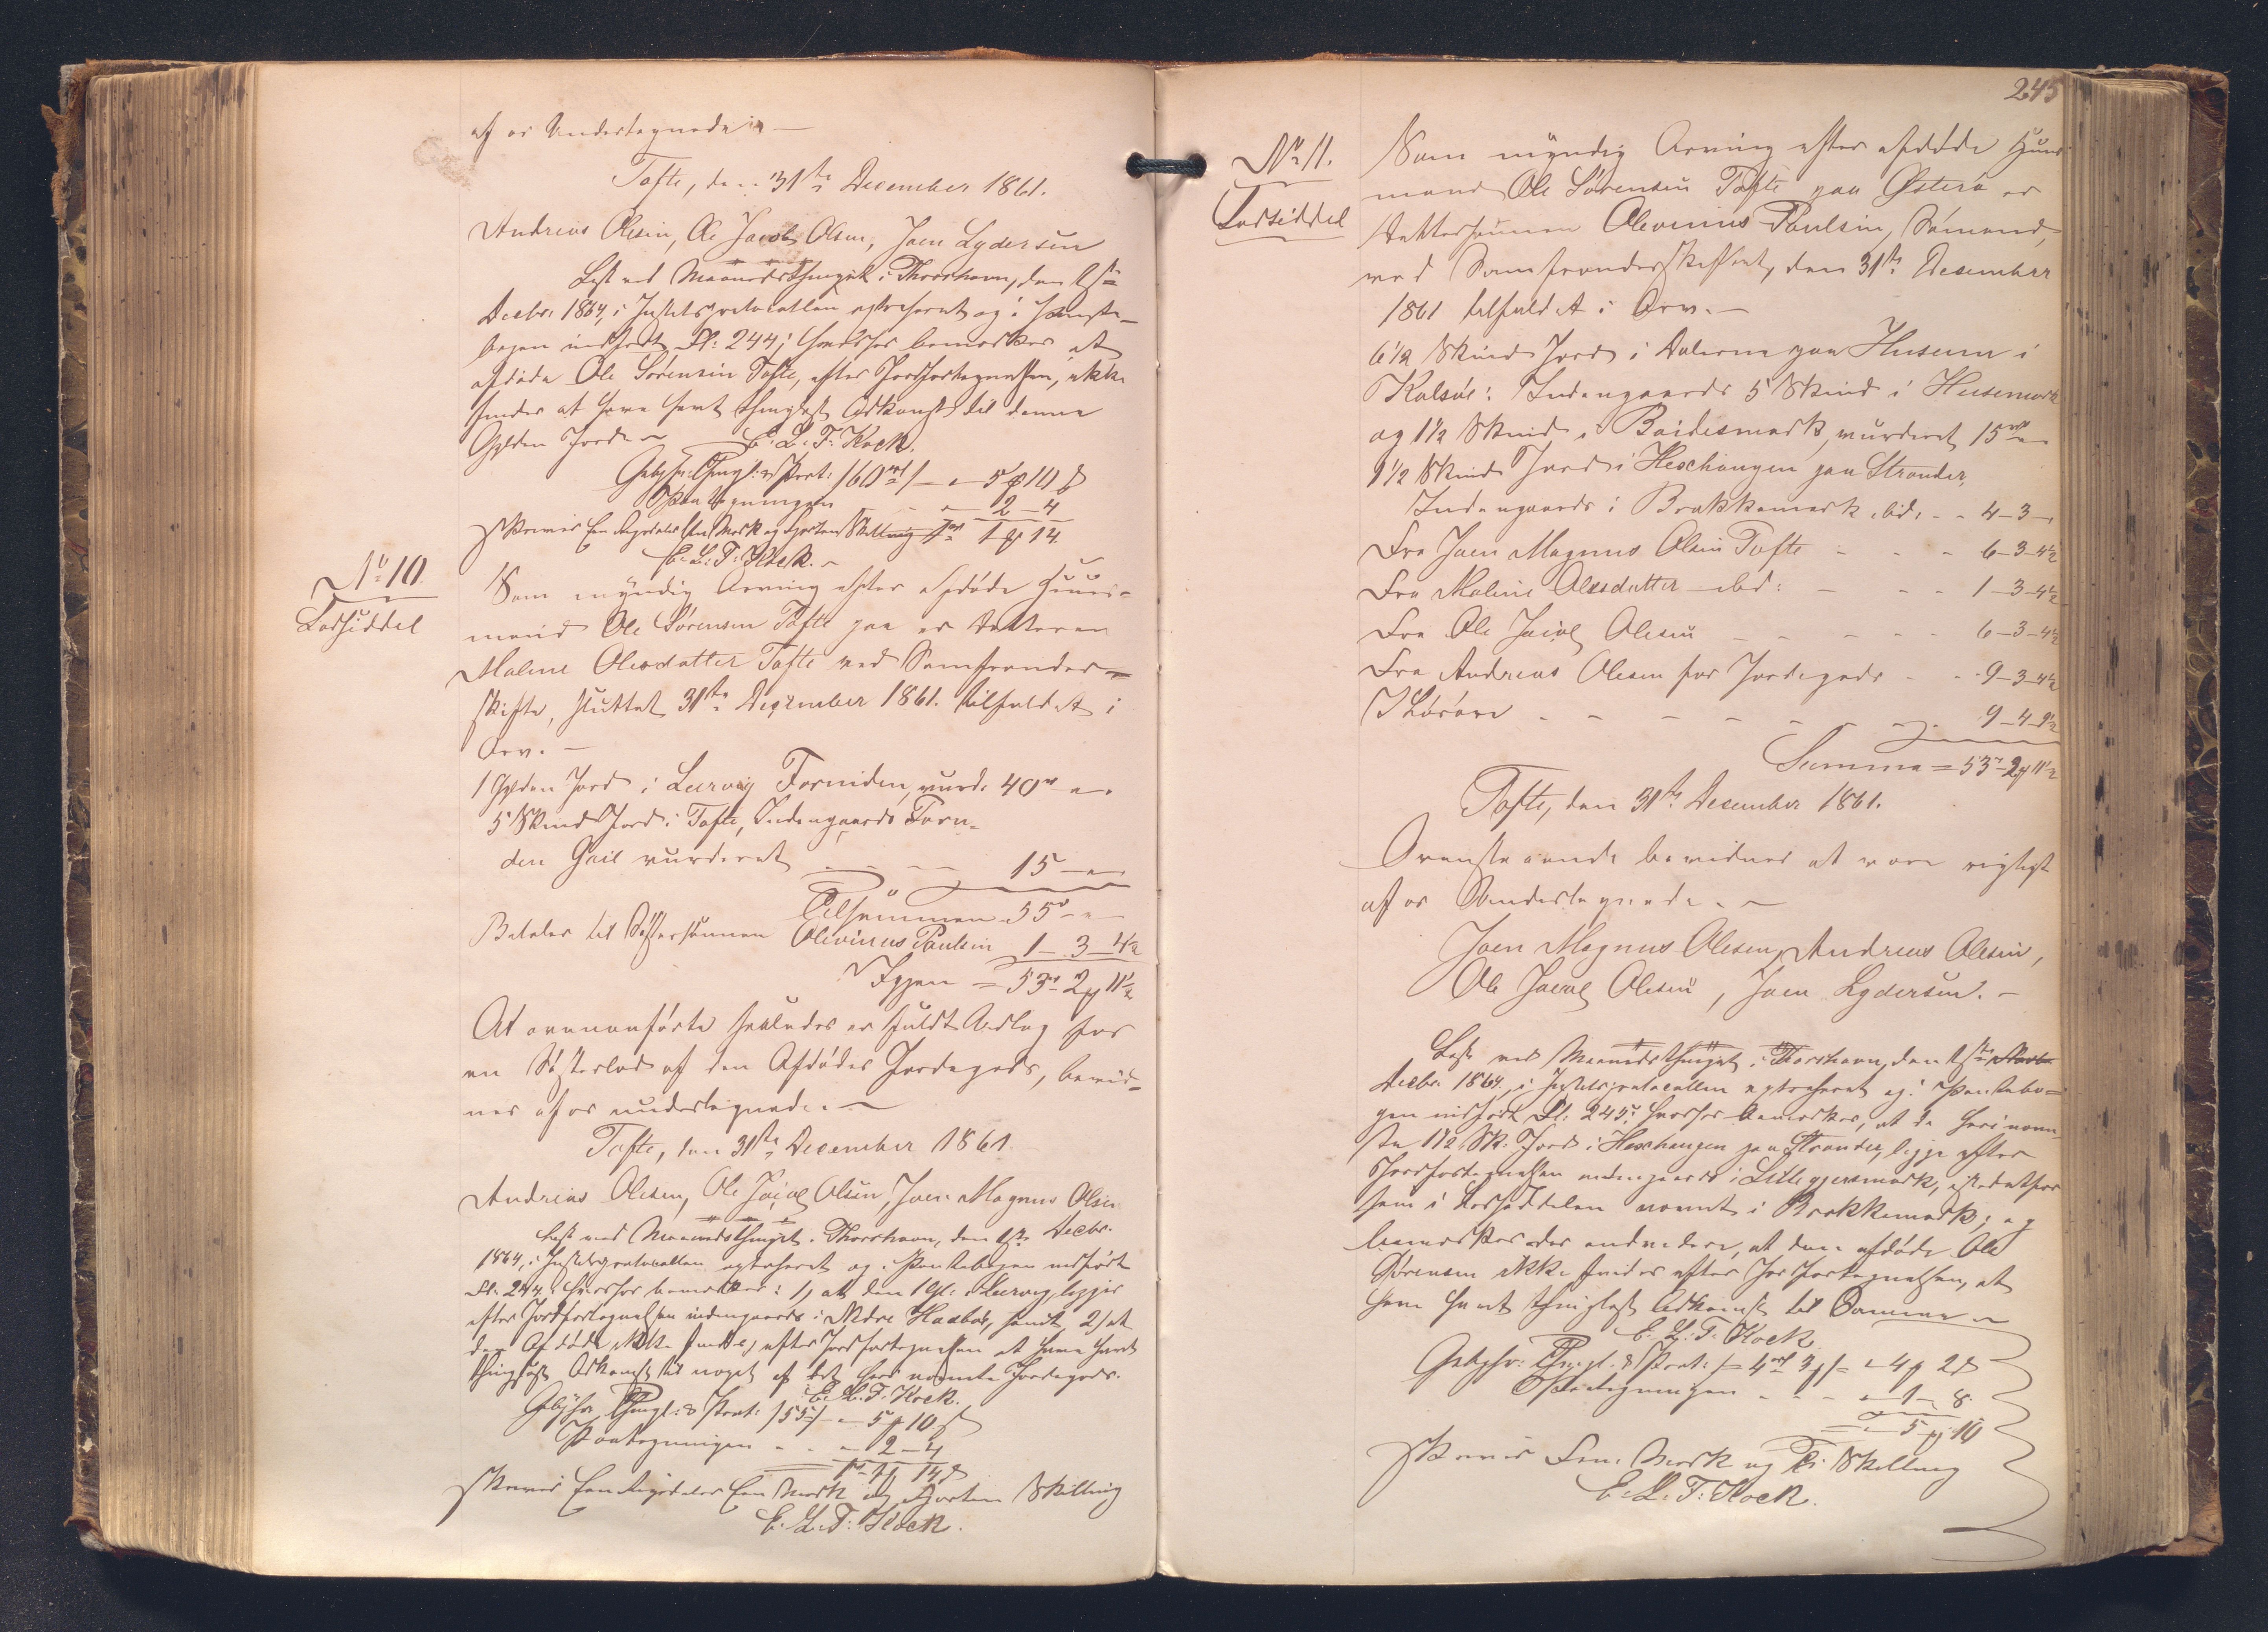 af os Undertegnede. —
Tofte, den 31te December 1861.
Andreas Olesen, Ole Jacob Olsen, Joen Lydersen
Læst ved Maanedsthinget i Thorshavn, den 1ste
Decbr. 1864, i Justitsprotocollen extraheret og i Pante-
bogen indført Fl: 244; hvorhos bemærkes at
afdøde Ole Sørensen Tofte, efter Jordfortegnelsen, ikke
findes at have havt thinglæst Adkomst til denne
Gylden Jord. E. L. T: Kock.
Gebyhr: Thingl: & Prot: /60rd/ — " — 5 ɱ 10 β
Paategningen " — 2 — 4
skrives Een Rigsdaler Een Mark og fjorten Skilling 1rd 1 ɱ 14.
E. L. T: Kock.
No 10.
Lodseddel
Som myndig Arving efter afdøde Huus-
mand Ole Sørensen Tofte paa er Datteren
Malene Olesdatter Tofte ved Samfrænder-
skifte, sluttet 31te December 1861. tilfaldet i
Arv. —
1 Gylden Jord i Leervig Forniden, vurd. 40rd " "
5 Skind Jord i Tofte, Indengaards Forn-
den Geil vurderet 15 — " —
Tilsammen 55rd — " —
Betaler til Søstersønnen Olevinus Paulsen 1 — 3 — 4½
Igjen = 53rd 2 ɱ 11½
At ovenanførte saaledes er fuldt Udlag for
en Søsterlod af den Afdødes Jordegods, bevid-
nes af os undertegnede. —
Tofte, den 31te December 1861.
Andreas Olesen, Ole Jacob Olsen, Joen Magnus Olsen
Læst ved Maanedsthinget i Thorshavn, den 1ste Decbr.
1864, i Justitsprotocollen extraheret og i Pantebogen indført
Fl. 244. hvorhos bemærkes: 1, at den 1 Gl: i Leervig, ligger
efter Jordfortegnelsen indengaards i Nedre samt 2, at
den Afdøde ikke findes, efter Jordfortegnelsen at have havt
thinglæst Adkomst til noget af det her nævnte Jordegods.
E. L. T. Kock.
Gebyhr Thingl: & Prot: /55rd/ — " — 5 ɱ 10 β
Paategningen " — 2 — 4
1rd 1 ɱ 14 β
skrives Een Rigsdaler Een Mark og fjorten Skilling
E. L. T. Kock.
245
No 11.
Lodseddel
Som myndig Arving efter afdøde Huus-
mand Ole Sørensen Tofte paa Østerø er
Dattersønnen Olevinus Paulsen, Sømand,
ved Samfrænderskiftet, den 31te December
1861 tilfaldet i Arv. —
6½ Skind Jord i Dalerne paa Husum i
Kalsøe: Indengaards 5 Skind i Husemark
og 1½ Skind i Boidesmark, vurderet 15rd " "
1½ Skind Jord i Heschangen paa Strander,
Indengaards i Brakkemark ibid. - - 4 — 3 — "
Fra Joen Magnus Olsen Tofte - - - 6 — 3 — 4½
Fra Malene Olesdatter ibid: - - - 1 — 3 — 4½
Fra Ole Jacob Olesen - - - - - 6 — 3 — 4½
Fra Andreas Olesen for Jordegods - - 9 — 3 — 4½
I Løsøre - - - - - - - 9 — 4 — 9½
Summa = 53rd — 2 ɱ 11½
Tofte, den 31te December 1861.
Ovenstaaende bevidnes at være rigtigt
af os Undertegnede. —
Joen Magnus Olesen, Andreas Olesen,
Ole Jacob Olesen, Joen Lydersen. —
Læst ved Maanedsthinget i Thorshavn, den 1ste
Decbr. 1864, i Justitsprotocollen extraheret og i Pantebo-
gen indført Fl: 245; hvorhos bemærkes, at de heri nævn-
te 1½ Sk. Jord i Heschangen paa Strander, ligge efter
Jordfortegnelsen indengaards i Lillegjersmark, istedetfor
som i Lodseddelen nævnt i Brakkemark; og
bemærkes der endvidere, at den afdøde Ole
Sørensen ikke findes efter Jordfortegnelsen, at
have havt thinglæst Adkomst til Samme
E. L: T: Kock
Gebyhr: Thingl. & Prot: /= 4rd 3 ɱ/= " 4 ɱ 2 β
Paategningen - - - " — 1 — 8.
= " — 5 ɱ 10
skrives Fem Mark og Ti Skilling
E. L. T: Kock.